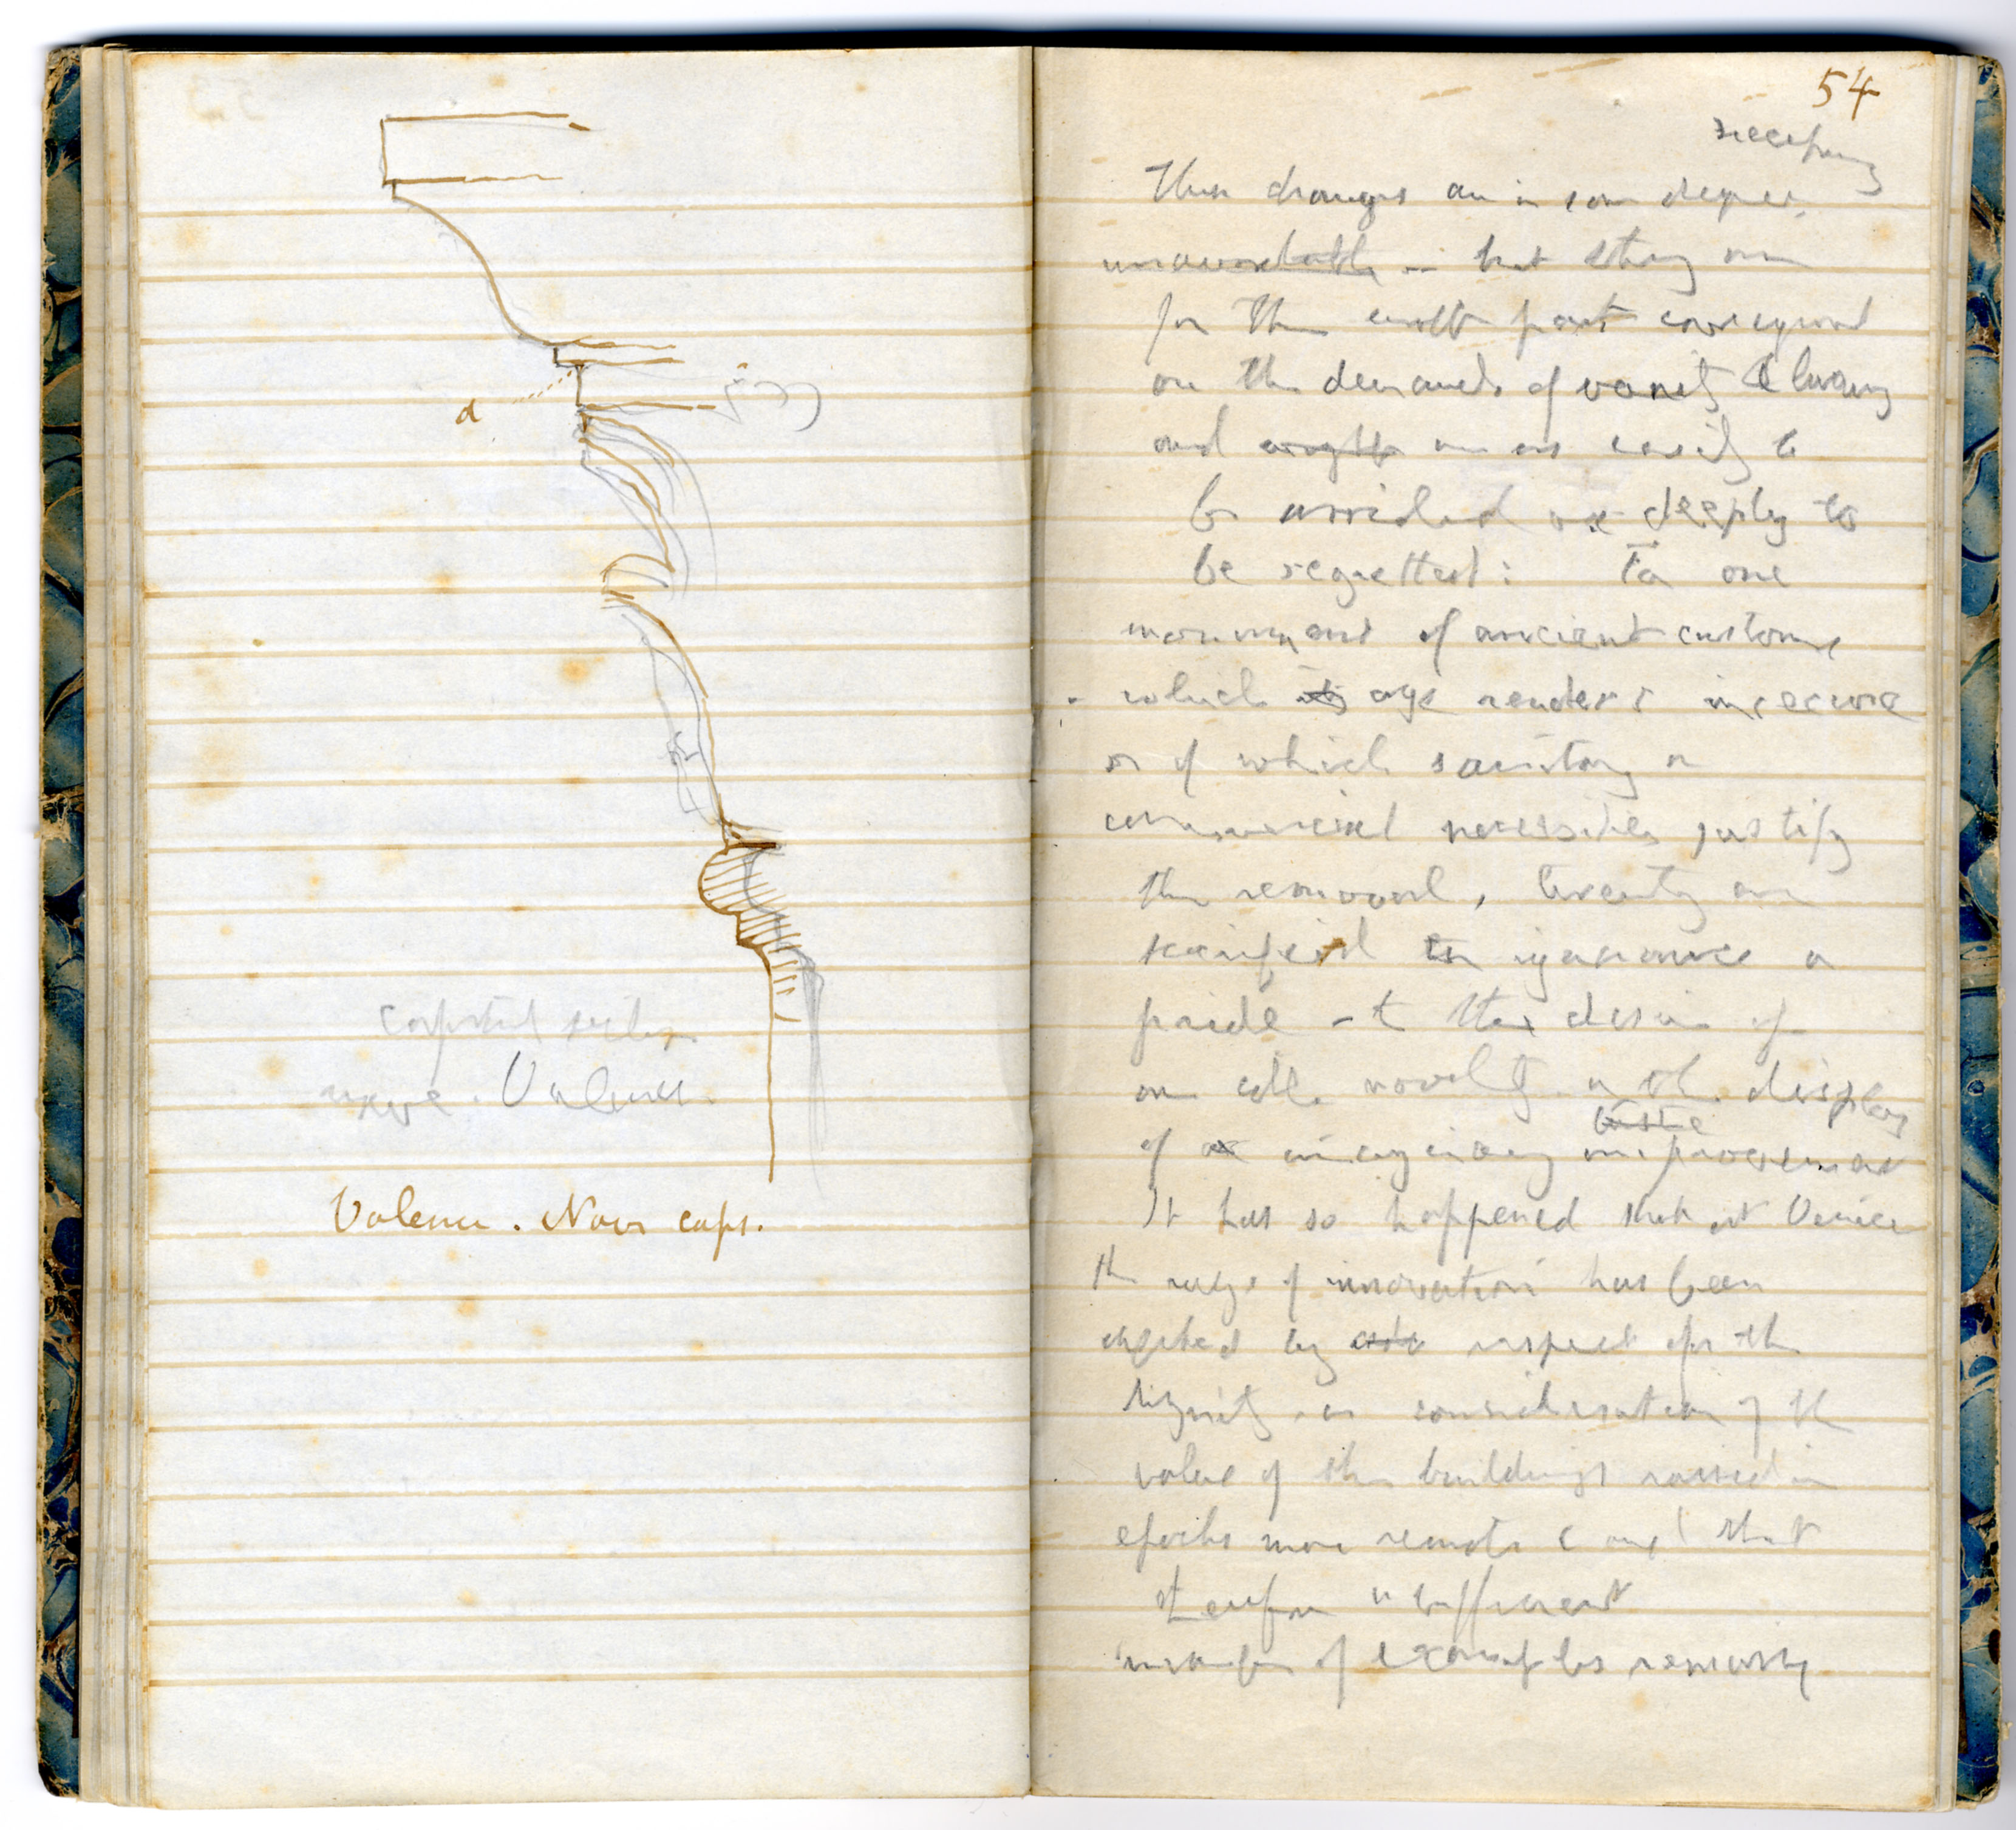 a
nave. Valence.
Valence. Nave caps.
54
necessary
These changes are in some degree,
unavoidable - but they are
for the most part consequent
on the demands of vanity & luxury
and are as easily to
be avoided as deeply to
be regretted: For one
monument of ancient customs
which its age renders insecure
or of which sanitary or
commercial necessities justify
the removal, twenty are
sacrificed to ignorance or
pride - to the desire of
novelty or the display
taste
of an imaginary improvement
It has so happened that at Venice
the rage of innovation has been
checked by respect for the
dignity or consideration of the
value of the buildings raised in
epochs more remote and that
therefore a sufficient
number of examples remaining